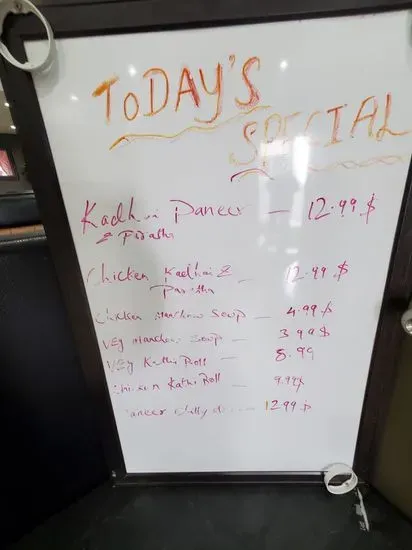 TODAY'S
SPECIAL
Kadhai Paneer — 12.99 $
& Paratha
Chicken Kadhai & — 12.99 $
Paratha
Chicken Manchow Soup — 4.99 $
Veg Manchow Soup — 3.99 $
Veg Kathi Roll — 8.99
Chicken Kathi Roll — 9.99$
Paneer Chilly — 12.99 $